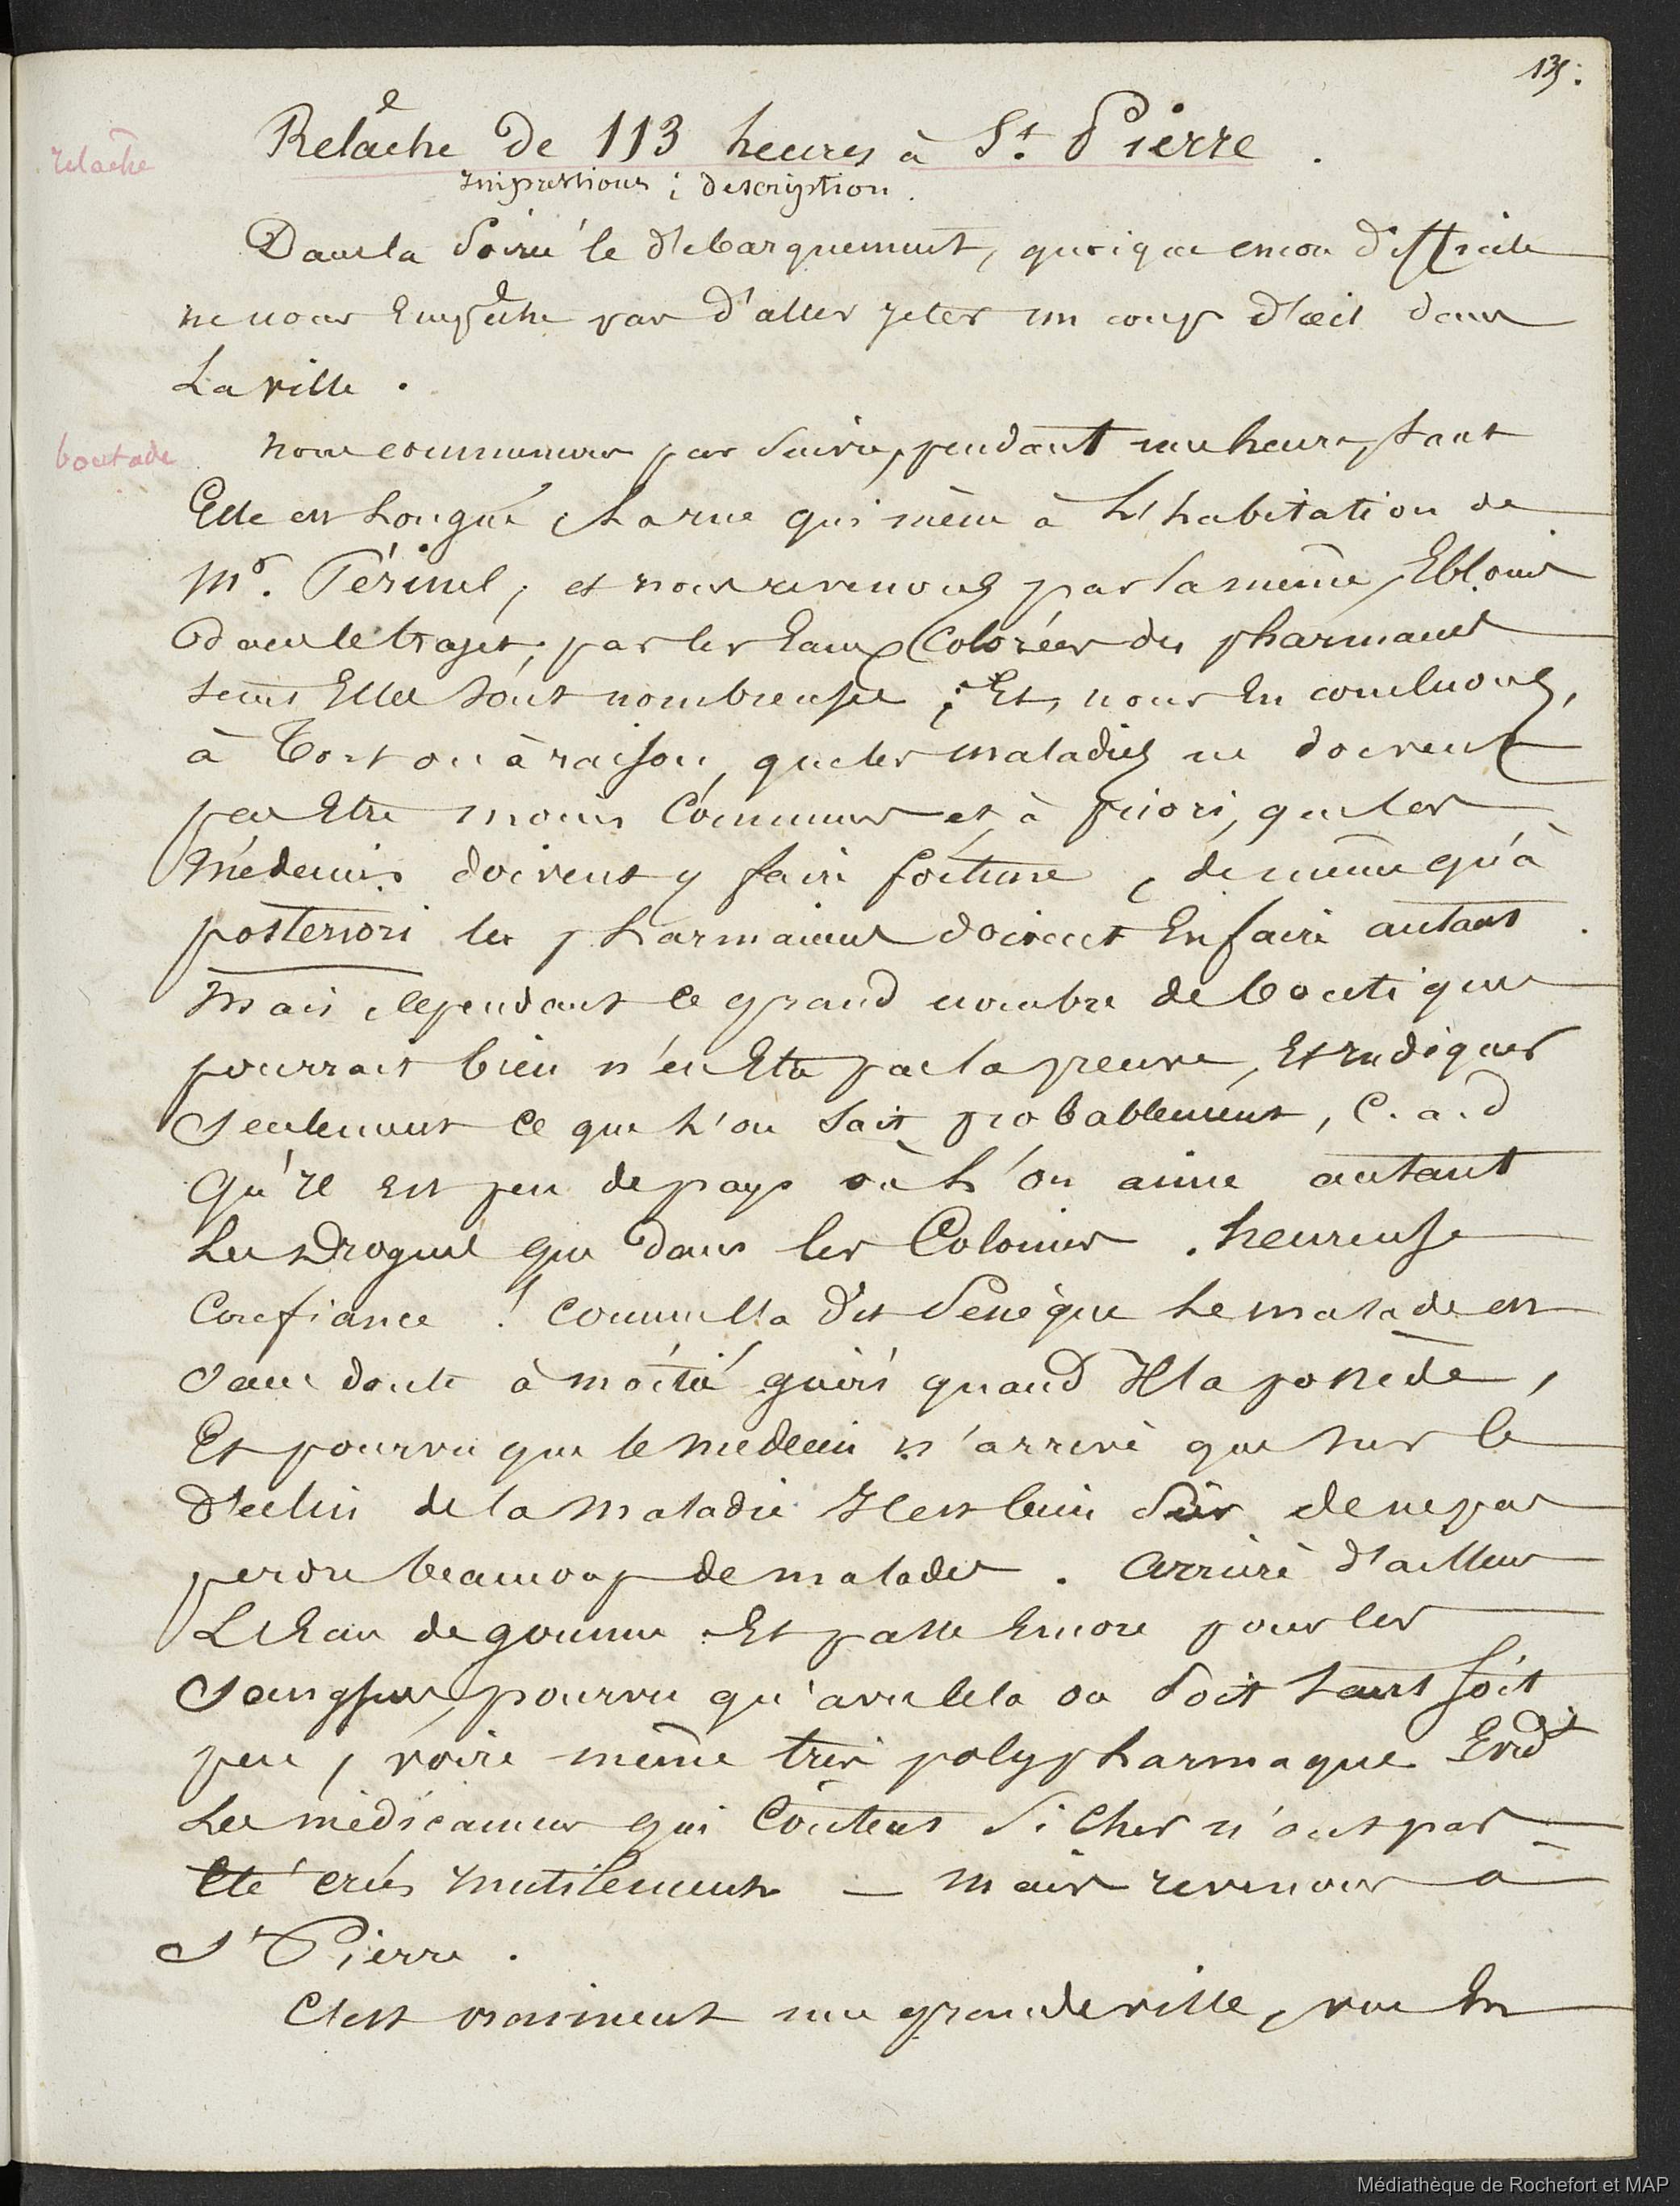 135.
Relâche de 113 heures à St. Pierre.
relache
Impressions ; description.
Dans la soirée le debarquement, quoique encore difficile
ne nous Empêche pas d'aller jeter un coup d'œil dans
La ville.
boutade
nous commencons par suivre, pendant une heure, tant
Elle est Longue, La rue qui mène à L'habitation de
Mr. Périnel, et nous revenons par la même, Eblouis
dans le trajet, par les Eaux Colorées des pharmacies
tant Elles sont nombreuses ; Et, nous En concluons,
à Tort ou à raison, que les maladies ne doivent
pas Etre moins Communes et, à priori, que les
Médecins doivent y faire fortune, de même qu'à
posteriori les pharmaciens doivent En faire autant.
Mais cependant ce grand nombre de boutiques
pourrait bien n'en Etre pas la preuve, Et Indiquer
seulement ce que L'on sait probablement, C. a. d
qu'Il est peu de pays où L'on aime autant
Les Drogues que dans les Colonies. heureuse
Confiance ! comme l'a dit Senèque Le malade est
sans doute à moitié guéri quand Il la possède,
Et pourvu que le medecin n'arrive que sur le
déclin de la Maladie Il est bien sûr de ne pas
perdre beaucoup de malades. Arrière d'ailleurs
L'Eau de gomme. Et passe Encore pour les
sangsues, pourvu qu'avec cela on soit tant soit
peu, voire même très polypharmaque. Evidt
Les médicamens qui Coutent si Cher n'ont pas
Eté créés Inutilement — Mais revenons à
St Pierre.
C'est vraiment une grande ville, vue En
Médiathèque de Rochefort et MAP